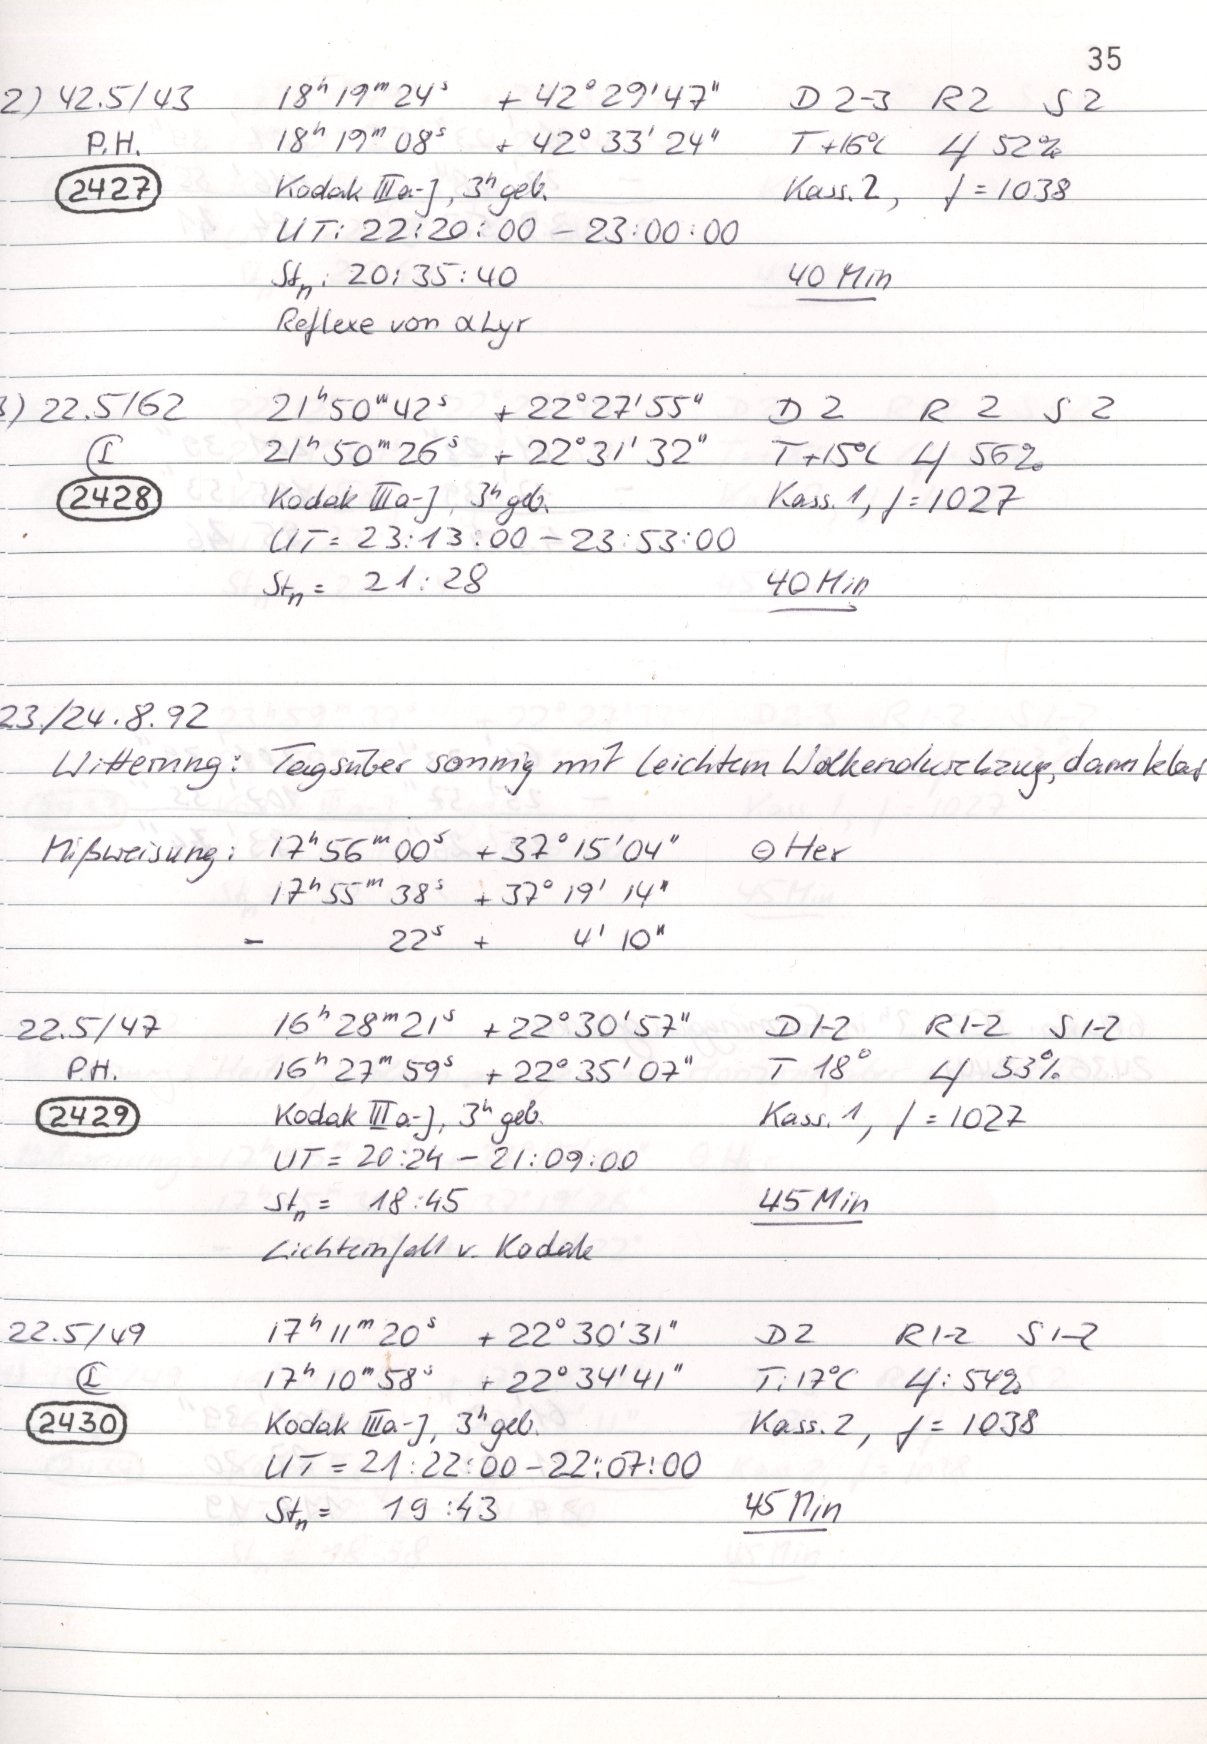 35
2) 42.5/43 18ʰ19ᵐ24ˢ +42°29'47" D 2-3 R 2 S 2
P.H. 18ʰ19ᵐ08ˢ +42°33'24" T +16°C 52%
2427 Kodak IIIa-J, 3ʰ geb. Kass. 2, f = 1038
UT: 22:20:00 – 23:00:00
Stₙ: 20:35:40 40 Min
Reflexe von α Lyr
3) 22.5/62 21ʰ50ᵐ42ˢ +22°27'55" D 2 R 2 S 2
21ʰ50ᵐ26ˢ +22°31'32" T +15°C 56%
2428 Kodak IIIa-J, 3ʰ geb. Kass. 1, f = 1027
UT = 23:13:00 – 23:53:00
Stₙ = 21:28 40 Min
23./24.8.92
Witterung: Tagsüber sonnig mit leichtem Wolkendurchzug, dann klar
Mißweisung: 17ʰ56ᵐ00ˢ +37°15'04" Θ Her
17ʰ55ᵐ38ˢ +37°19'14"
– 22ˢ + 4'10"
22.5/47 16ʰ28ᵐ21ˢ +22°30'57" D 1-2 R 1-2 S 1-2
P.H. 16ʰ27ᵐ59ˢ +22°35'07" T 18° 53%
2429 Kodak IIIa-J, 3ʰ geb. Kass. 1, f = 1027
UT = 20:24 – 21:09:00
Stₙ = 18:45 45 Min
Lichteinfall v. Kodak
22.5/49 17ʰ11ᵐ20ˢ +22°30'31" D 2 R 1-2 S 1-2
17ʰ10ᵐ58ˢ +22°34'41" T: 17°C : 54%
2430 Kodak IIIa-J, 3ʰ geb. Kass. 2, f = 1038
UT = 21:22:00 – 22:07:00
Stₙ = 19:43 45 Min